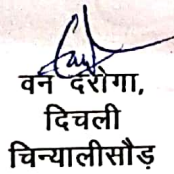 वन दरोगा,
दिचली
चिन्यालीसौड़